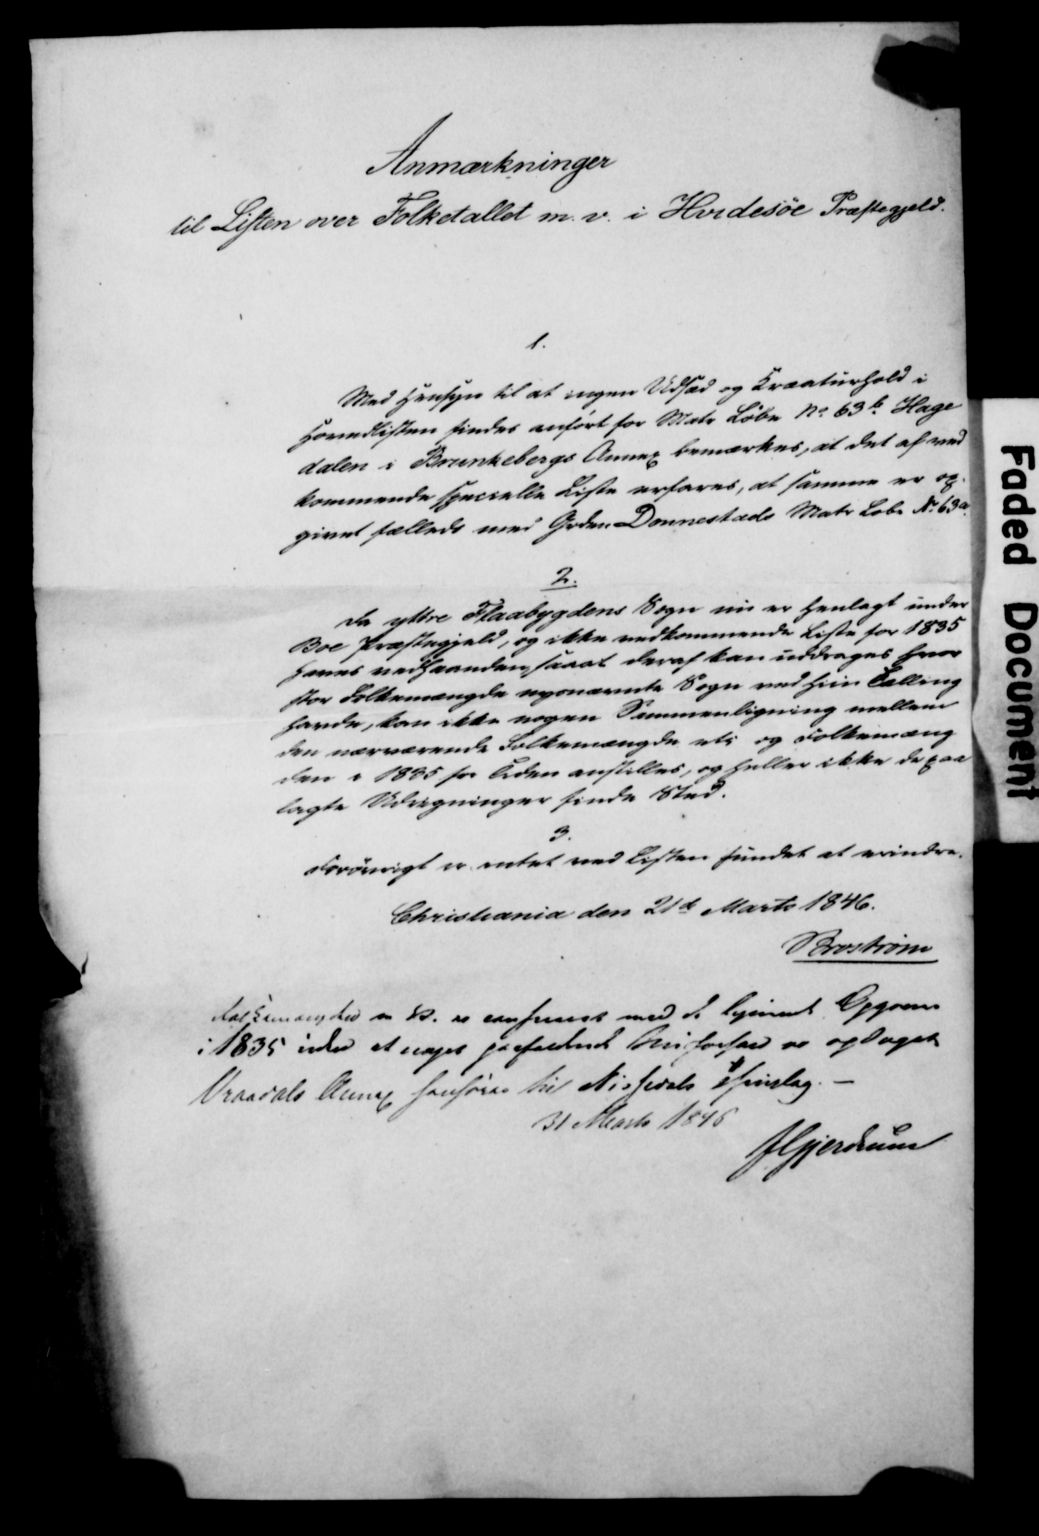 Anmærkninger
til Listen over Folketallet m. v. i Hvidesöe Præstegjeld.
1.
Med Hensyn til at ingen Udsæd og Kreaturhold i
Hovedlisten findes anfört for Matr Löbe No 63 b Hage
dalen i Brunkebergs Annex bemærkes, at det af ved
kommende specielle Liste erfares, at samme er op-
givet fælleds med Grden Donnestads Matr Löbe No 63 a.
2.
Da yttre Flaabygdens Sogn nu er henlagt under
Boe Præstegjeld, og ikke vedkommende Liste for 1835
haves ved Haanden, saaat deraf kan uddrages hvor
stor Folkemængde ovennævnte Sogn ved hiin Tælling
havde, kan ikke nogen Sammenligning mellem
den nærværende Folkemængde etc og Folkemæng
den i 1835 for Tiden anstilles, og heller ikke de paa
lagte Udregninger finde Sted.
3.
Forövrigt er intet ved Listen fundet at erindre.
Christiania den 21de Marts 1846.
Broström
Folkemængden m V. er confereret med de Opgaver
i 1835 uden at noget er opdaget
Vraadals Annex henföres til Nissedals Thinglag. —
31 Marts 1846
Gjerdrum
Faded Document